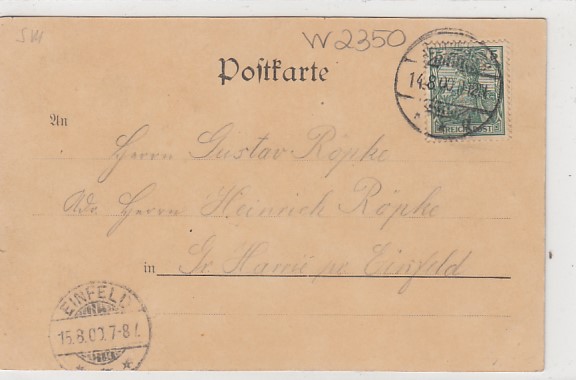 SM
W2350
Postkarte
5
14.8.00
REICHSPOST
An
Herrn Gustav Röpke
Adr. Herrn Heinrich Röpke
in Gr. Harrie pr Einfeld
EINFELD
15.8.00.7-8